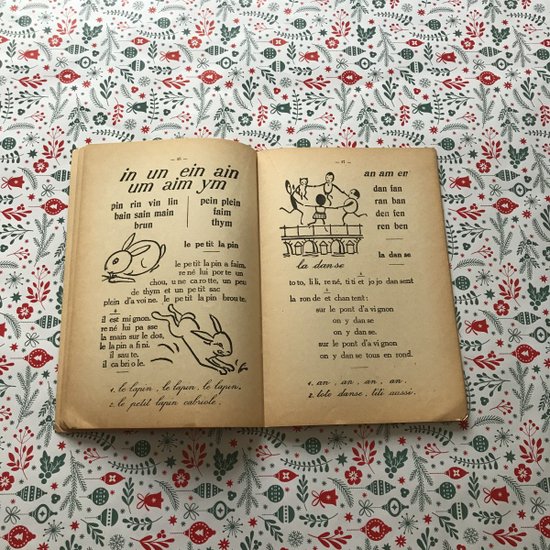 in un ein ain
um aim ym
pin rin vin lin
bain sain main
brun
pein plein
faim
thym
le petit lapin
le petit lapin a faim.
rené lui porte un
chou, une carotte, un peu
de thym et un petit sac
plein d'avoine. le petit lapin broute.
il est mignon.
rené lui passe
la main sur le dos,
le lapin a fini.
il saute,
il cabriole.
1. le lapin, le lapin, le lapin.
2. le petit lapin cabriole.
an am en
dan tan
ran ban
den ten
ren ben
la danse
la danse
toto, lili, rené, titi et jojo dansent
la ronde et chantent:
sur le pont d'avignon
on y danse
on y danse.
sur le pont d'avignon
on y danse tous en rond.
1. an, an, an, an.
2. toto danse, titi aussi.